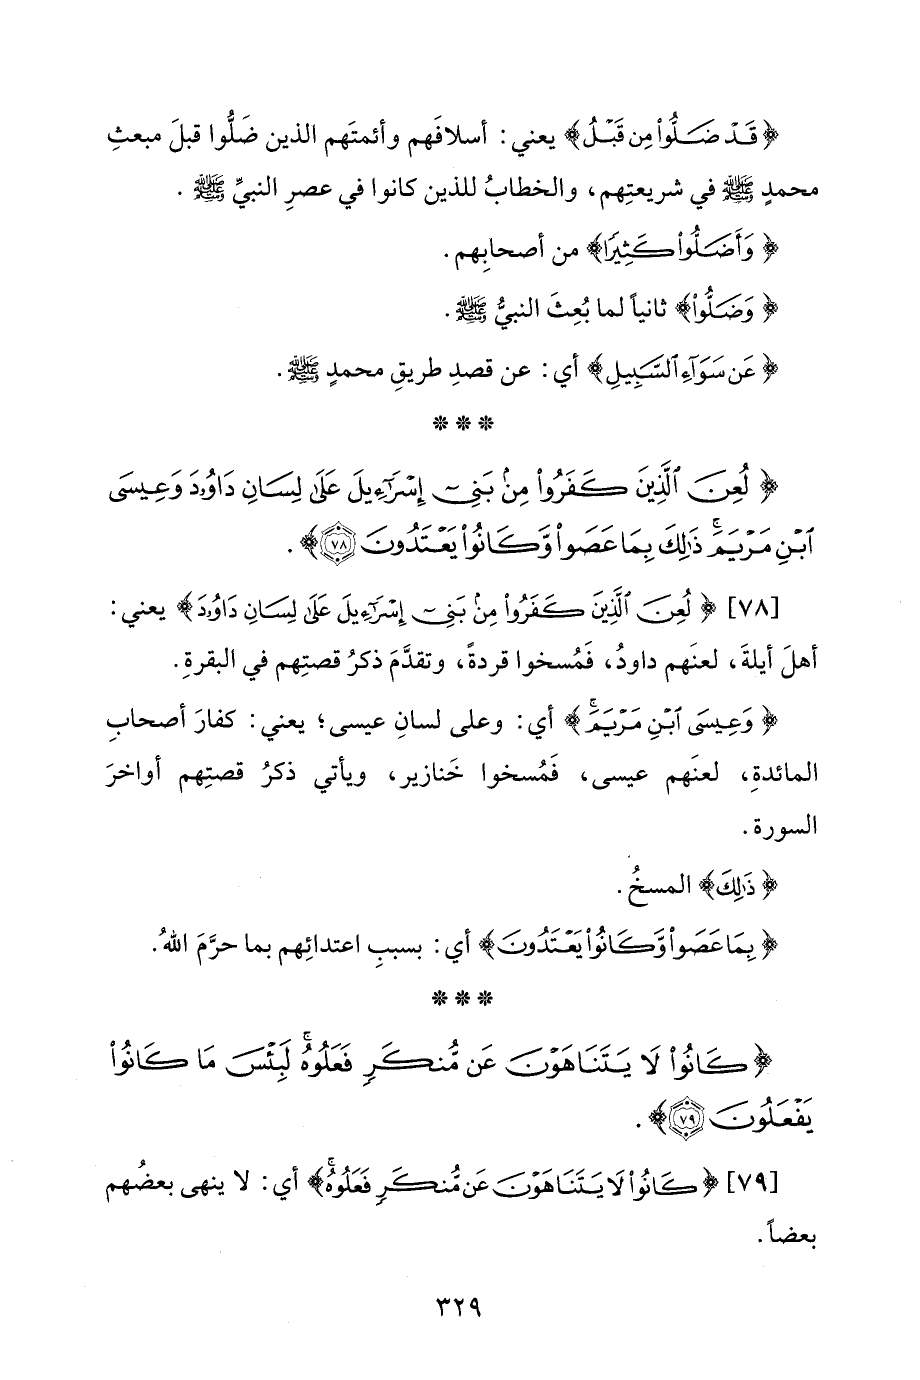 ﴿قَدْ ضَلُّوا۟ مِن قَبْلُ﴾ يعني: أسلافَهم وأئمتَهم الذين ضَلُّوا قبلَ مبعثِ
محمدٍ ﷺ في شريعتِهم، والخطابُ للذين كانوا في عصرِ النبيِّ ﷺ .
﴿وَأَضَلُّوا۟ كَثِيرًا﴾ من أصحابِهم .
﴿وَضَلُّوا۟﴾ ثانياً لما بُعِثَ النبيُّ ﷺ .
﴿عَن سَوَآءِ ٱلسَّبِيلِ﴾ أي: عن قصدِ طريقِ محمدٍ ﷺ .
* * *
﴿لُعِنَ ٱلَّذِينَ كَفَرُوا۟ مِنۢ بَنِىٓ إِسْرَٰٓءِيلَ عَلَىٰ لِسَانِ دَاوُۥدَ وَعِيسَى
ٱبْنِ مَرْيَمَ ۚ ذَٰلِكَ بِمَا عَصَوا۟ وَّكَانُوا۟ يَعْتَدُونَ ٧٨﴾ .
[٧٨] ﴿لُعِنَ ٱلَّذِينَ كَفَرُوا۟ مِنۢ بَنِىٓ إِسْرَٰٓءِيلَ عَلَىٰ لِسَانِ دَاوُۥدَ﴾ يعني:
أهلَ أيلةَ، لعنَهم داودُ، فَمُسخوا قردةً، وتقدَّمَ ذكرُ قصتِهم في البقرةِ .
﴿وَعِيسَى ٱبْنِ مَرْيَمَ ۚ﴾ أي: وعلى لسانِ عيسى؛ يعني: كفارَ أصحابِ
المائدةِ، لعنَهم عيسى، فَمُسخوا خَنازير، ويأتي ذكرُ قصتِهم أواخرَ
السورة .
﴿ذَٰلِكَ﴾ المسخُ .
﴿بِمَا عَصَوا۟ وَّكَانُوا۟ يَعْتَدُونَ﴾ أي: بسببِ اعتدائِهم بما حرَّمَ اللهُ .
* * *
﴿كَانُوا۟ لَا يَتَنَاهَوْنَ عَن مُّنكَرٍ فَعَلُوهُ ۚ لَبِئْسَ مَا كَانُوا۟
يَفْعَلُونَ ٧٩﴾ .
[٧٩] ﴿كَانُوا۟ لَا يَتَنَاهَوْنَ عَن مُّنكَرٍ فَعَلُوهُ ۚ﴾ أي: لا ينهى بعضُهم
بعضاً .
٣٢٩